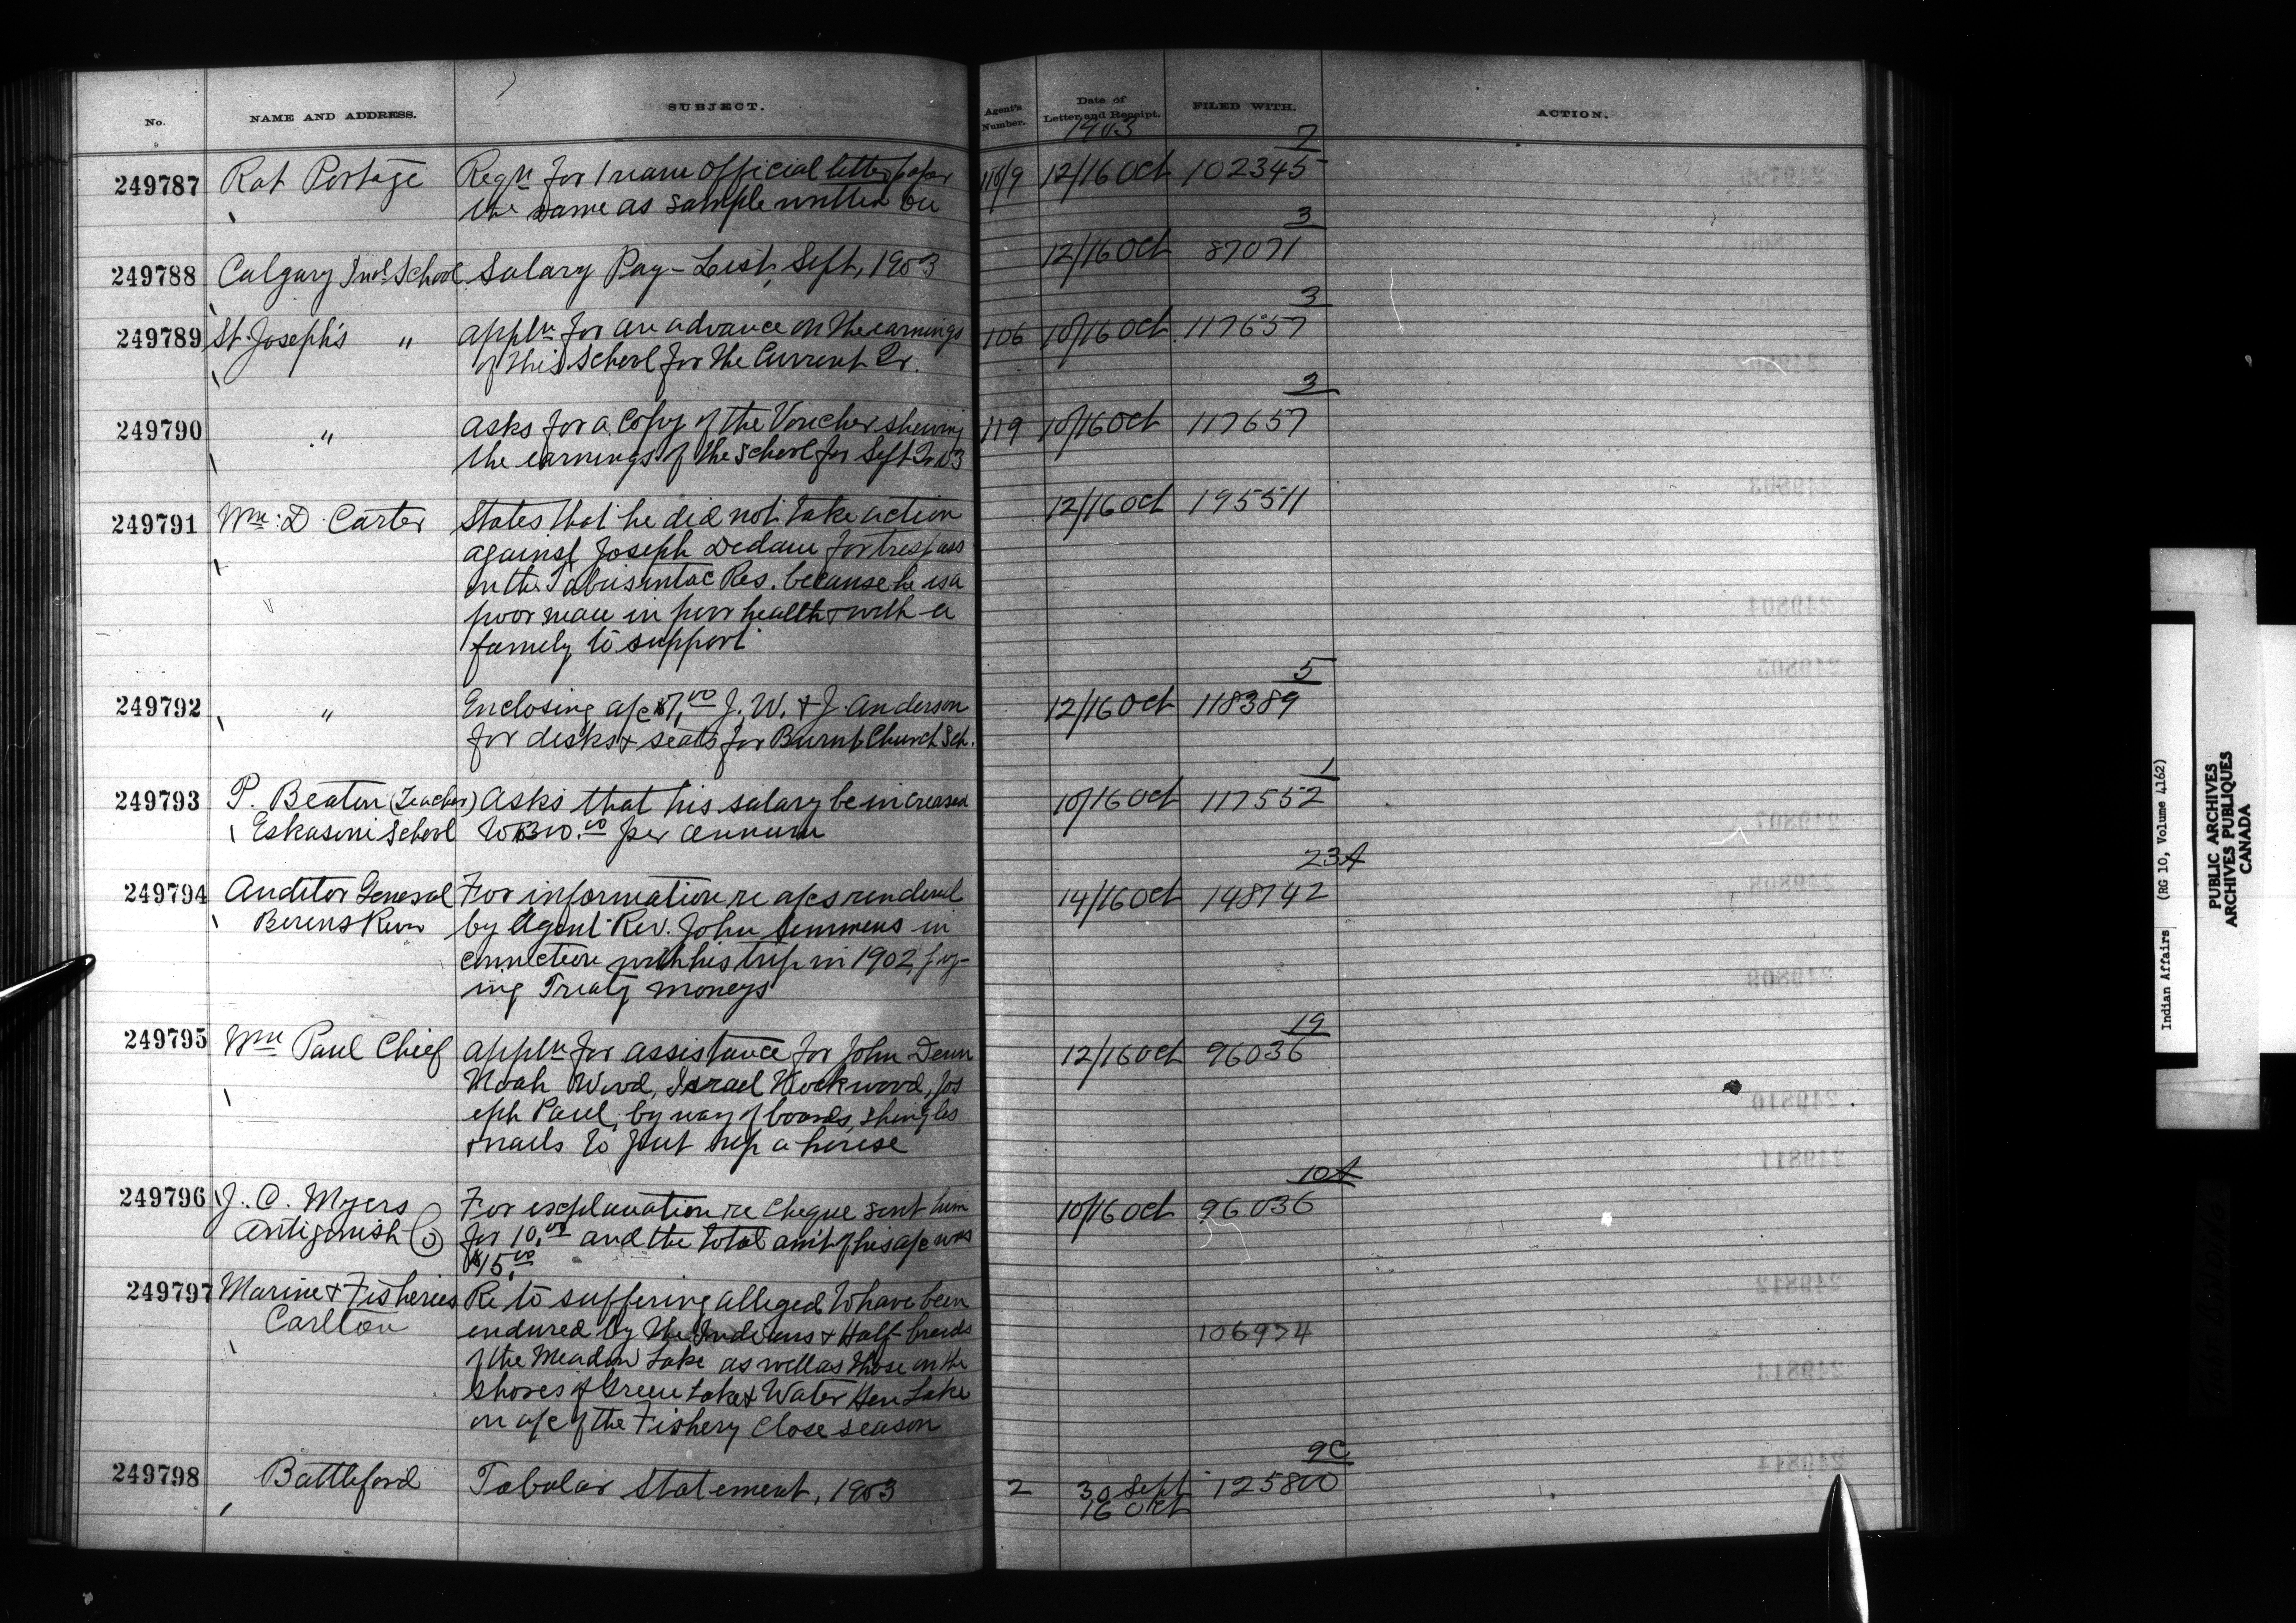 No. NAME AND ADDRESS. SUBJECT. Agent's Number. Date of Letter and Receipt. FILED WITH. ACTION.
1903
7
249787 Rat Portage Reqn for 1 ream official letter paper 12/16 Oct 102345
the same as sample written on
3
249788 Calgary Indl School Salary Pay-List, Sept, 1903 12/16 Oct 87071
3
249789 St. Joseph's " appln for an advance on the earnings 106 10/16 Oct 117657
of this School for the Current Qr.
3
249790 " asks for a Copy of the Voucher shewing 119 10/16 Oct 117657
the earnings of the School for Sept Qr 03
249791 Wm. D. Carter States that he did not take action 12/16 Oct 195511
against Joseph Dedam for trespass
on the Tabusintac Res. because he is a
poor man in poor health & with a
family to support
5
249792 " Enclosing a/c J. W. & J. Anderson 12/16 Oct 118389
for desks & seats for Burnt Church Sch.
1
249793 P. Beaton (Teacher) Asks that his salary be increased 10/16 Oct 117552
Eskasoni School per annum
23A
249794 Auditor General For information re a/cs rendered 14/16 Oct 148742
Berens River by Agent Rev. John Semmens in
connection with his trip in 1902 pay-
ing Treaty moneys
19
249795 Wm Paul Chief appln for assistance for John Denn 12/16 Oct 96036
Noah Wood, Israel Knockwood, Jos
eph Paul, by way of boards, shingles
& nails to put up a house
10A
249796 J. C. Myers For explanation re Cheque sent him 10/16 Oct 96036
Antigonish Co for 10.00 and the total amt of his a/c was
$15.00
249797 Marine & Fisheries Re to suffering alleged to have been
Carlton endured by the Indians & Half-breeds 106974
of the Meadow Lake as well as those on the
shores of Green Lake & Water Hen Lake
on a/c of the Fishery Close season
9C
249798 Battleford Tabular Statement, 1903 2 30 Sept 125800
16 Oct
Indian Affairs (RG 10, Volume 4162)
PUBLIC ARCHIVES
ARCHIVES PUBLIQUES
CANADA